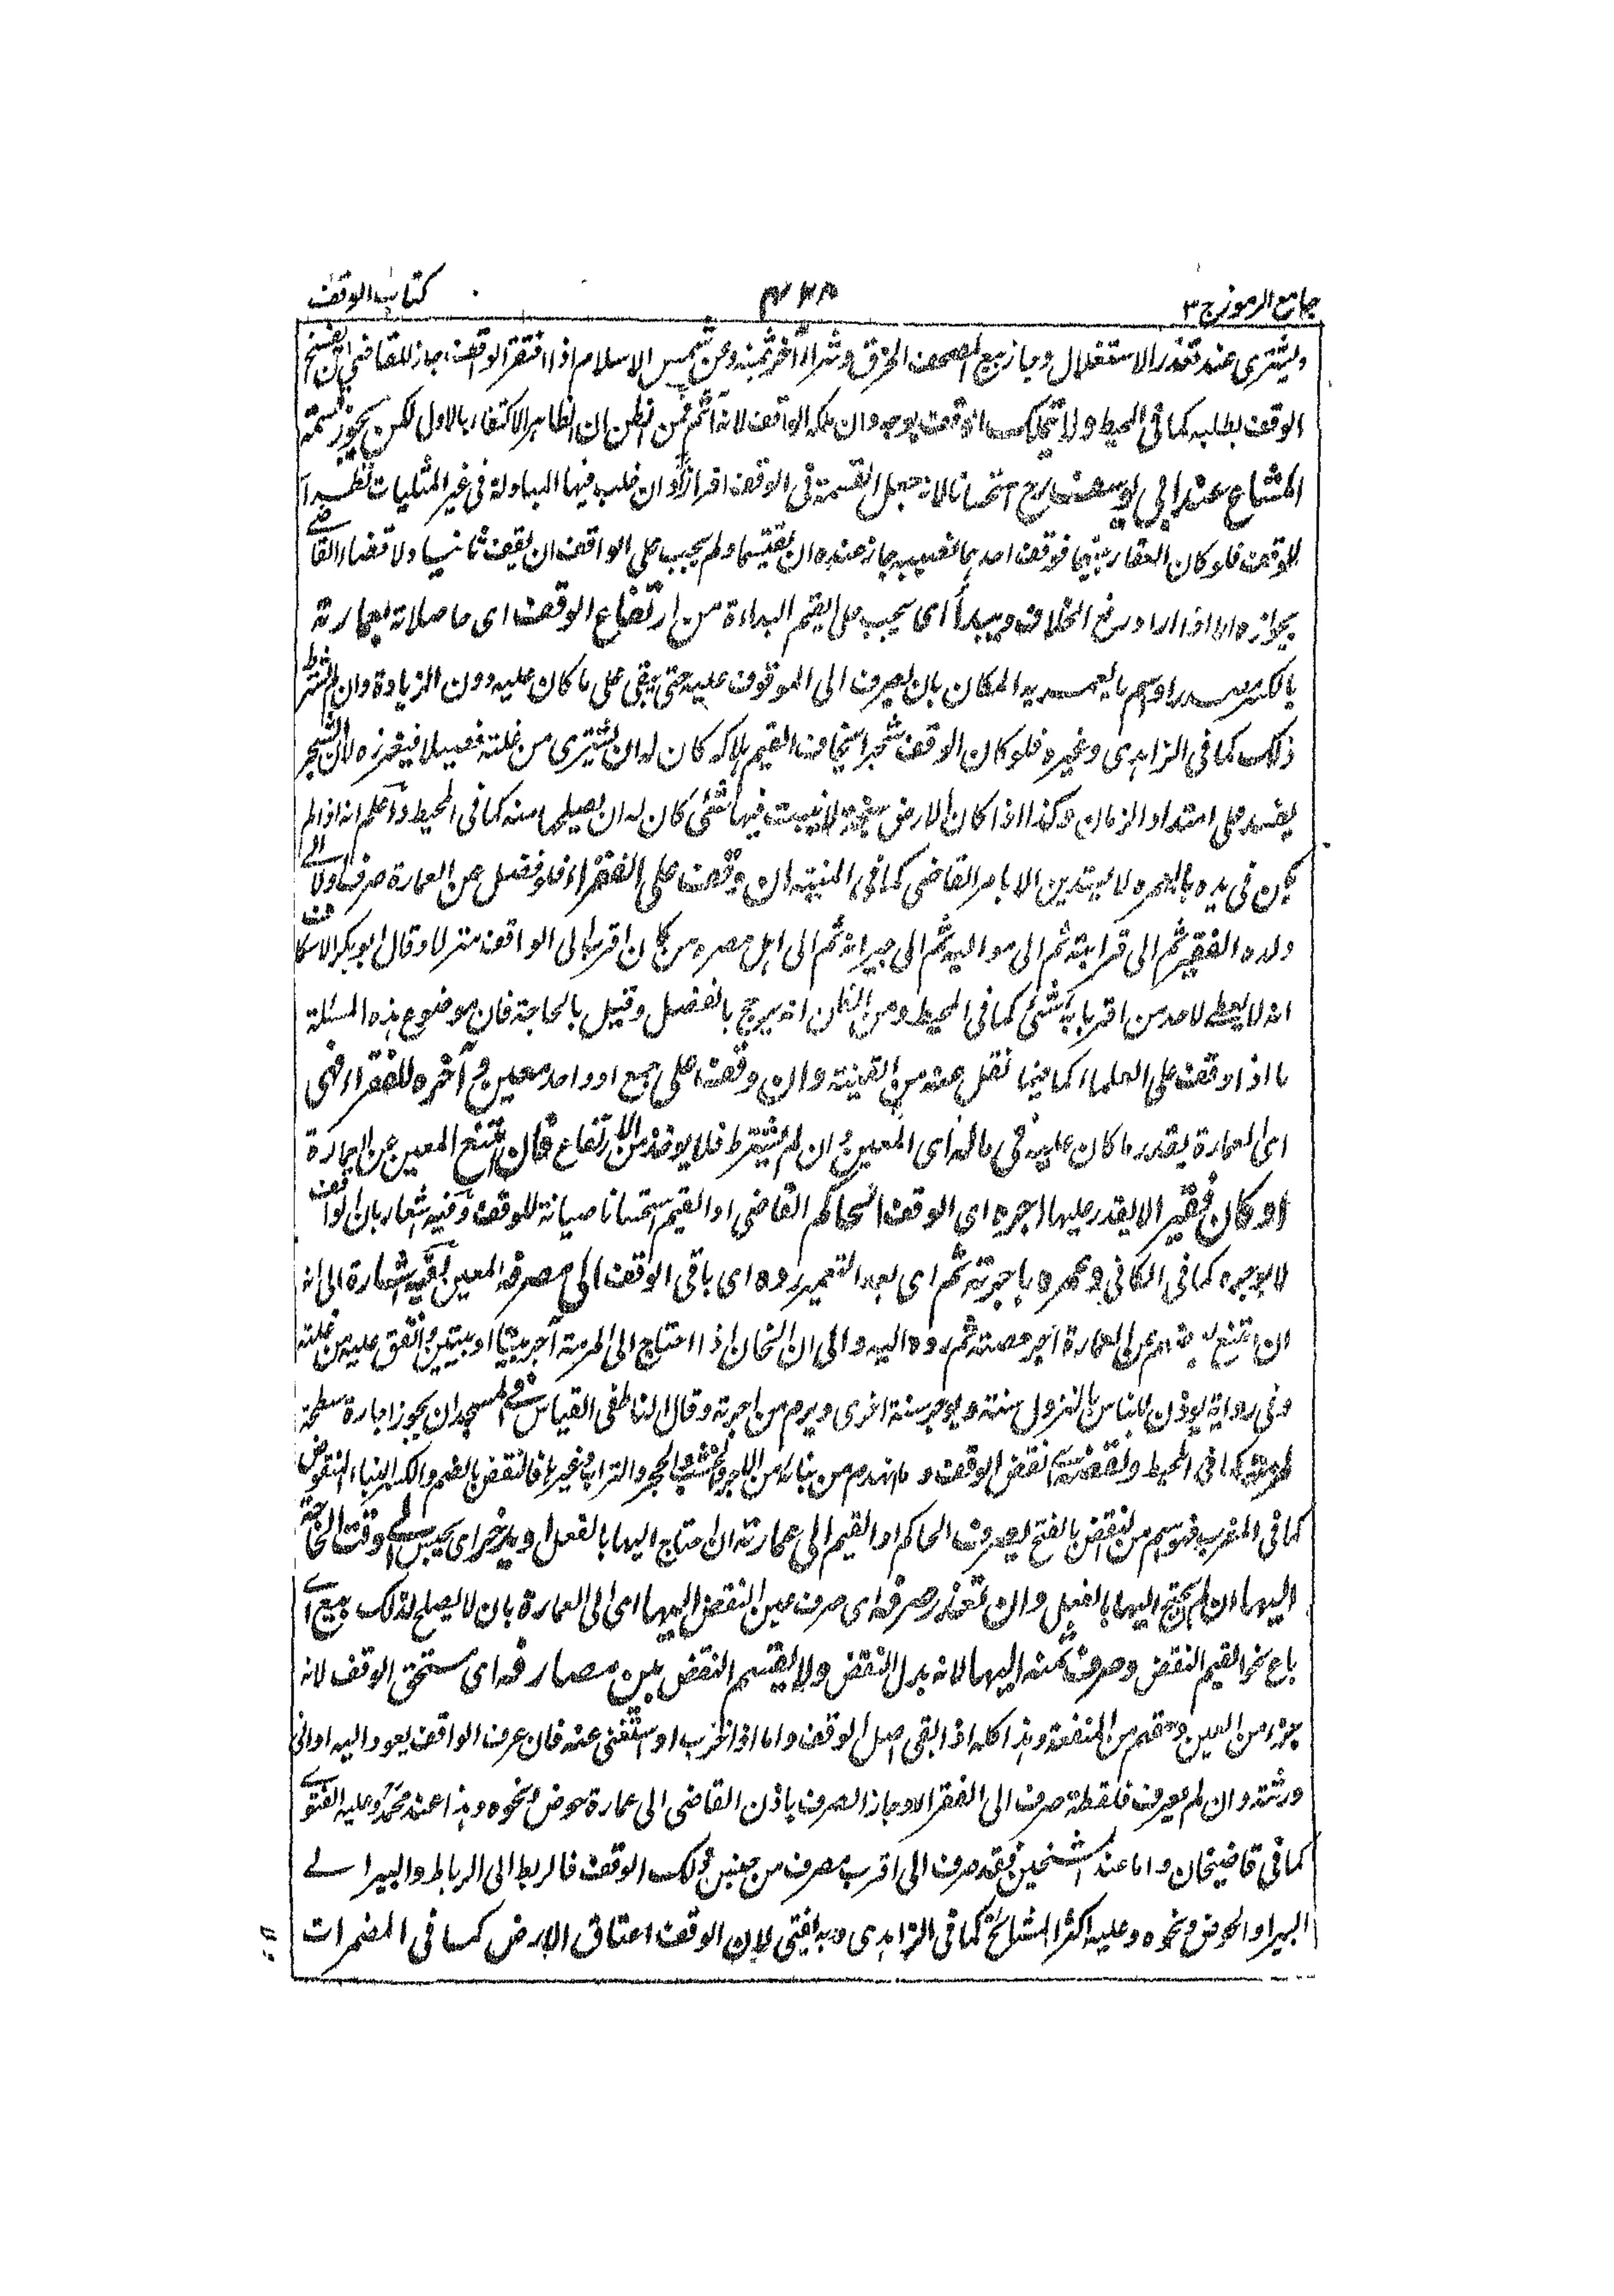 جامع الرموز ج ٣
٤٢٨
كتاب الوقف
ويشترى عند تعذر الاستغلال وجاز بيع المصحف الخرق وشراء آخر بثمنه وعن شمس الاسلام اذا افتقر الواقف جاز للقاضي ان يفسخ
الوقف بطلبه كما في المحيط ولا يتملك الوقف بوجه وان ملكه الواقف لانه آثم فمن الظن ان الظاهر الاكتفاء بالاول لكن يجوز قسمة
المشاع عند ابي يوسف رح استحسانا لانه جعل القسمة في الوقف افرازا وان غلب فيها المبادلة في غير المثليات نظرا
للوقف فلو كان العقار بينهما فوقف احدهما نصيبه جاز عنده ان يقتسما ولم يجب على الواقف ان يقف ثانيا ولا قضاء القاضي
بجوازه الا اذا اراد رفع الخلاف ويبدأ اي يجب على القيم البداءة من ارتفاع الوقف اي حاصلاته بعمارته
بالكسر مصدر او اسم ما يعمر به المكان بان يصرف الى الموقوف عليه حتى يبقى على ما كان عليه دون الزيادة وان لم يشترط
ذلك كما في الزاهدي وغيره فلو كان الوقف شجرا يخاف القيم هلاكه كان له ان يشترى من غلته فصيلا فيغرزه لان الشجر
يفسد على امتداد الزمان وكذا اذا كان الارض سبخة لا ينبت فيها شئ كان له ان يصلحها منه كما في المحيط واعلم انه اذا لم
يكن في يده ما يعمره لا يستدين الا بامر القاضي كما في المنية ان وقف على الفقراء فلو فضل عن العمارة صرف اولا الى
ولده الفقير ثم الى قرابته ثم الى مواليه ثم الى جيرانه ثم الى اهل مصره من كان اقرب الى الواقف منزلا وقال ابو بكر الاسكاف
انه لا يعطى لاحد من اقربائه شئ كما في المحيط ومن الظن انه يرجح بالفضل وقيل بالحاجة فان موضوع هذه المسئلة
ما اذا وقف على العلماء كما فيما نقل عنه من القنية وان وقف على جمع او واحد معين وآخره للفقراء فهي
اي العمارة بقدر ما كان عليه في ماله اي المعين ان لم يشترط فلا يوخذ من الارتفاع فان امتنع المعين عن العمارة
او كان فقيرا لا يقدر عليها اجره اي الوقف الحاكم القاضي او القيم استحسانا صيانة للوقف وفيه اشعار بان الواقف
لا يوجره كما في الكافي وعمره باجرته ثم اي بعد التعمير رده اي باقي الوقف الى مصرفه المعين ففيه اشارة الى انه
ان امتنع بعضهم عن العمارة آجر حصته ثم رده اليه والى ان الخان اذا احتاج الى المرمة آجر بيتا او بيتين وانفق عليه من غلته
وفي رواية يوذن للناس بالنزول سنة ويوجر سنة اخرى ويرم من اجرته وقال الناطفي القياس في المسجد ان يجوز اجارة سطحه
لمرمته كما في المحيط ونقضه اي نقض الوقف وما انهدم من بنائه من الآجر والخشب والحجر والتراب وغيرها فالنقض بالضم والكسر البناء المنقوض
كما في المغرب فهو اسم من النقض بالفتح يصرف الحاكم او القيم الى عمارته ان احتاج اليها بالفعل ويدخر اي يحبس الى وقت الحاجة
اليها ان لم يحتج اليها بالفعل وان تعذر صرفه اي صرف عين النقض اليها اي الى العمارة بان لا يصلح لذلك بيع اي
باع نحو القيم النقض وصرف ثمنه اليها لانه بدل النقض ولا يقسم النقض بين مصارفه اي مستحق الوقف لانه
جزء من العين وحقهم من المنفعة وهذا كله اذا بقي اصل الوقف واما اذا خرب او استغنى عنه فان عرف الواقف يعود اليه او الى
ورثته وان لم يعرف فلقطة صرف الى الفقراء الا وجاز الصرف باذن القاضي الى عمارة حوض ونحوه وهذا عند محمد وعليه الفتوى
كما في قاضيخان واما عند الشيخين فقد صرف الى اقرب مصرف من جنس ذلك الوقف فالربط الى الرباط والبير الى
البير او الحوض ونحوه وعليه اكثر المشائخ كما في الزاهدي وبه يفتى لان الوقف اعتاق الارض كما في المضمرات